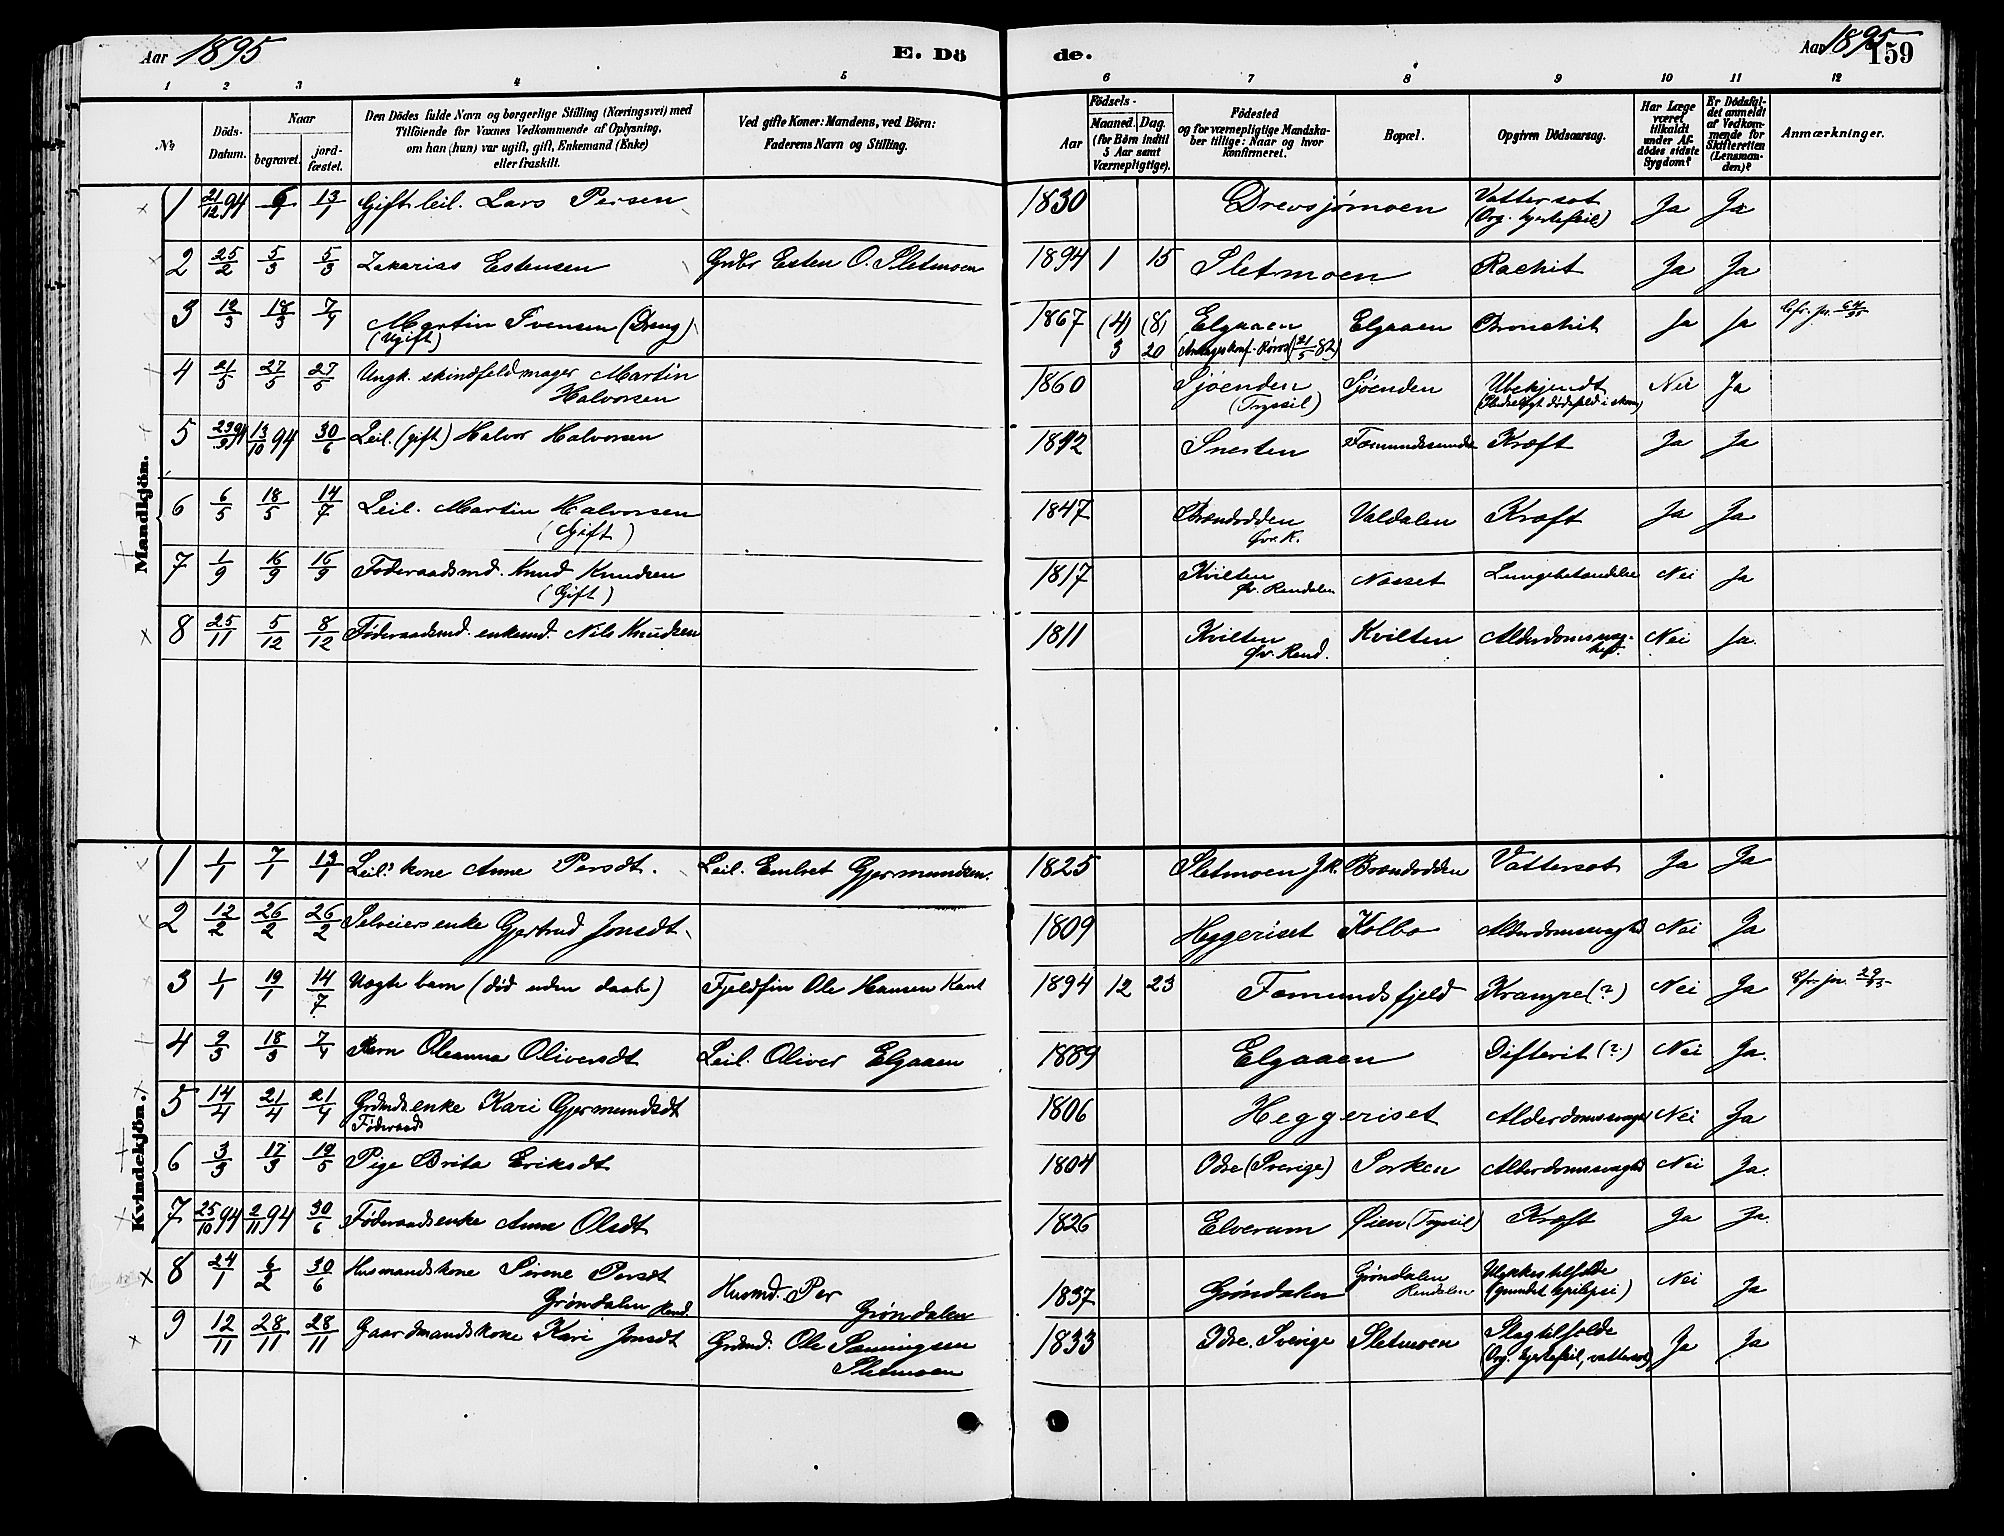 Aar 1895
E. Dö
de.
Aar 1895
159
1 2 3 4 5 6 7 8 9 10 11 12
№ Döds-Datum. Naar begravet. jord-fæstet. Den Dödes fulde Navn og borgerlige Stilling (Næringsvei) med Tilföiende for Voxnes Vedkommende af Oplysning, om han (hun) var ugift, gift, Enkemand (Enke) eller fraskilt. Ved gifte Koner: Mandens, ved Börn: Faderens Navn og Stilling. Födsels- Aar Maaned. Dag. (for Börn indtil 5 Aar samt Værnepligtige). Födested og for værnepligtige Mandska-ber tillige: Naar og hvor konfirmeret. Bopæl. Opgiven Dödsaarsag. Har Læge været tilkaldt under Af-dödes sidste Sygdom? Er Dödsfal-det anmeldt af Vedkom-mende for Skifteretten (Lensman-den)? Anmærkninger.
Mandkjön.
1 21/12 94 6/1 13/1 Gift leil. Lars Persen 1830 Drevsjømoen Vattersot (Org. hjertefeil) Ja Ja
2 25/2 5/3 5/3 Zakarias Estensen Grdbr Esten O. Sletmoen 1894 1 15 Sletmoen Rachit Ja Ja
3 12/3 18/3 7/4 Martin Svensen (Dreng) (Ugift) 1867 (4) 3 (8) 20 Elgaaen Elgaaen Bronchit Ja Ja
4 21/5 27/5 27/5 Ungk. skindfeldmager Martin Halvorsen 1860 Sjøenden (Trysil) Sjøenden Ubekjendt Nei Ja
5 13/10 94 30/6 Leil. (gift) Halvor Halvorsen Kræft Ja Ja
6 6/5 18/5 14/7 Leil. Martin Halvorsen (Gift) 1847 Brændodden Valdalen Kræft Ja Ja
7 1/9 16/9 16/9 Føderaadsmd. Knud Knudsen (Gift) 1817 Kvilten Øv. Rendalen Næsset Lungebetændelse Nei Ja
8 25/11 5/12 8/12 Føderaadsmd. enkemd. Nils Knudsen 1811 Kvilten Øv. Rend. Kvilten Alderdomssvag-hed. Nei Ja.
Kvindekjön.
1 1/1 7/1 13/1 Leil.s kone Anne Persdt. Leil. Embret Gjermundsen. 1825 Sletmoen Brændodden Vattersot Ja Ja
2 12/2 26/2 26/2 Selveiersenke Gjertrud Jonsdt. 1809 Heggeriset Kolbo Alderdomssvaghd Nei Ja
3 1/1 19/1 14/7 Uægte barn (död uden daab) Fjeldfin Ole Hansen Kant 1894 12 23 Fæmundsfjeld Krampe (?) Nei Ja
4 9/3 18/3 7/4 Barn Oleanna Oliversdt Leil. Oliver Elgaaen 1889 Elgaaen Difterit (?) Nei Ja.
5 14/4 21/4 21/4 Grdmdsenke Kari Gjermundsdt Føderaads 1806 Heggeriset Alderdomssvaghd Nei Ja
6 3/3 17/3 19/5 Pige Brita Eriksdt 1804 Idre (Sverige) Sorken Alderdomssvaghd Nei Ja.
7 25/10 94 2/11 94 30/6 Føderaadsenke Anne Olsdt 1826 Elverum Øien (Trysil) Kræft Ja Ja.
8 24/1 6/2 30/6 Husmandskone Sirene Persdt Grøndalen Rend. Husmd. Per Grøndalen 1837 Grøndalen Grøndalen Rendalen Ulykkestilfælde (grundet epilepsi) Nei Ja
9 12/11 28/11 28/11 Gaardmandskone Kari Jonsdt Grdmd. Ole Sletmoen 1833 Idre. Sverige Sletmoen Slagtilfælde (Org. hjertefeil, vattersot) Ja Ja